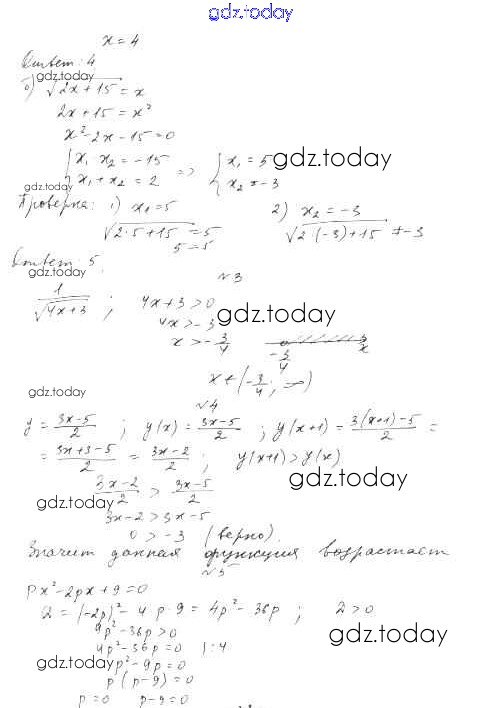 gdz.today
x = 4
Ответ: 4
gdz.today
б) √(2x + 15) = x
2x + 15 = x²
x² - 2x - 15 = 0
{ x₁ x₂ = -15
x₁ + x₂ = 2 => { x₁ = 5
x₂ = -3
gdz.today
gdz.today
Проверка: 1) x₁ = 5 2) x₂ = -3
√(2·5 + 15) = 5 √(2·(-3) + 15) ≠ -3
5 = 5
Ответ: 5
gdz.today
№3
1/√(4x+3) ; 4x + 3 > 0
4x > -3
gdz.today
x > -3/4 -3/4 x
x ∈ (-3/4; ∞)
gdz.today
№4
y = (3x-5)/2 ; y(x) = (3x-5)/2 ; y(x+1) = (3(x+1)-5)/2 =
= (3x+3-5)/2 = (3x-2)/2 ; y(x+1) > y(x)
(3x-2)/2 > (3x-5)/2
gdz.today
gdz.today
3x - 2 > 3x - 5
0 > -3 (верно)
Значит данная функция возрастает
№5
px² - 2px + 9 = 0
D = (-2p)² - 4 p·9 = 4p² - 36p ; D > 0
4p² - 36p > 0
gdz.today
4p² - 36p = 0 |:4
gdz.today
p² - 9p = 0
p(p-9) = 0
p = 0 p-9 = 0